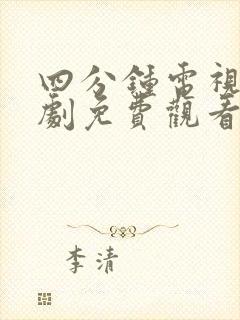 四分鍾電視
劇免費觀看
李清